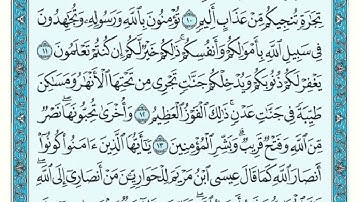 تِجَٰرَةٖ تُنجِيكُم مِّنۡ عَذَابٍ أَلِيمٖ ١٠ تُؤۡمِنُونَ بِٱللَّهِ وَرَسُولِهِۦ وَتُجَٰهِدُونَ
فِي سَبِيلِ ٱللَّهِ بِأَمۡوَٰلِكُمۡ وَأَنفُسِكُمۡۚ ذَٰلِكُمۡ خَيۡرٞ لَّكُمۡ إِن كُنتُمۡ تَعۡلَمُونَ ١١
يَغۡفِرۡ لَكُمۡ ذُنُوبَكُمۡ وَيُدۡخِلۡكُمۡ جَنَّٰتٖ تَجۡرِي مِن تَحۡتِهَا ٱلۡأَنۡهَٰرُ وَمَسَٰكِنَ
طَيِّبَةٗ فِي جَنَّٰتِ عَدۡنٖۚ ذَٰلِكَ ٱلۡفَوۡزُ ٱلۡعَظِيمُ ١٢ وَأُخۡرَىٰ تُحِبُّونَهَاۖ نَصۡرٞ
مِّنَ ٱللَّهِ وَفَتۡحٞ قَرِيبٞۗ وَبَشِّرِ ٱلۡمُؤۡمِنِينَ ١٣ يَٰٓأَيُّهَا ٱلَّذِينَ ءَامَنُواْ كُونُوٓاْ
أَنصَارَ ٱللَّهِ كَمَا قَالَ عِيسَى ٱبۡنُ مَرۡيَمَ لِلۡحَوَارِيِّـۧنَ مَنۡ أَنصَارِيٓ إِلَى ٱللَّهِۖ